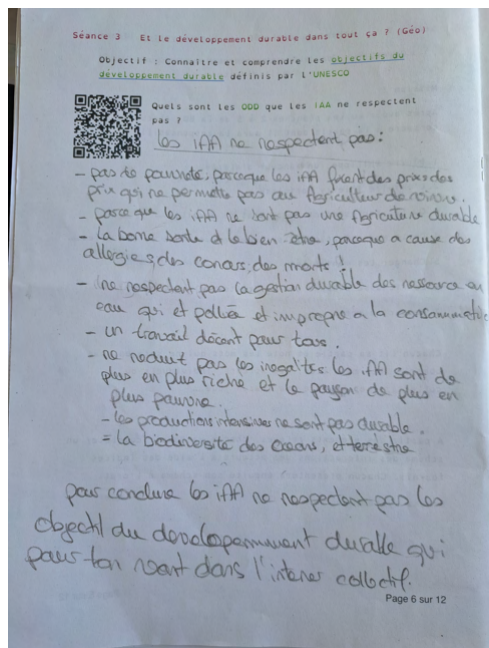 Séance 3 Et le développement durable dans tout ça ? (Géo)
Objectif : Connaître et comprendre les objectifs du
développement durable définis par l'UNESCO
Quels sont les ODD que les IAA ne respectent
pas ?
les iAA ne respectent pas :
- pas de pauvreté, parceque les iAA fixent des prix des
prix qui ne permette pas au Agriculteur de vivre.
- parce que les iAA ne sont pas une Agriculture durable
- la bonne santé et le bien être, parceque a cause des
allergies, des cancers, des morts !
- ne respectent pas la gestion durable des ressource en
eau qui et polluée et impropre a la consommation
- un travail décent pour tous.
- ne reduit pas les inegalités les iAA sont de
plus en plus riche et le paysan de plus en
plus pauvre.
- les productions intensives ne sont pas durable.
= la biodiversité des oceans, et terrestre
pour conclure les iAA ne respectent pas les
objectif du developemment durable qui
pour tan vont dans l'interer collectif.
Page 6 sur 12